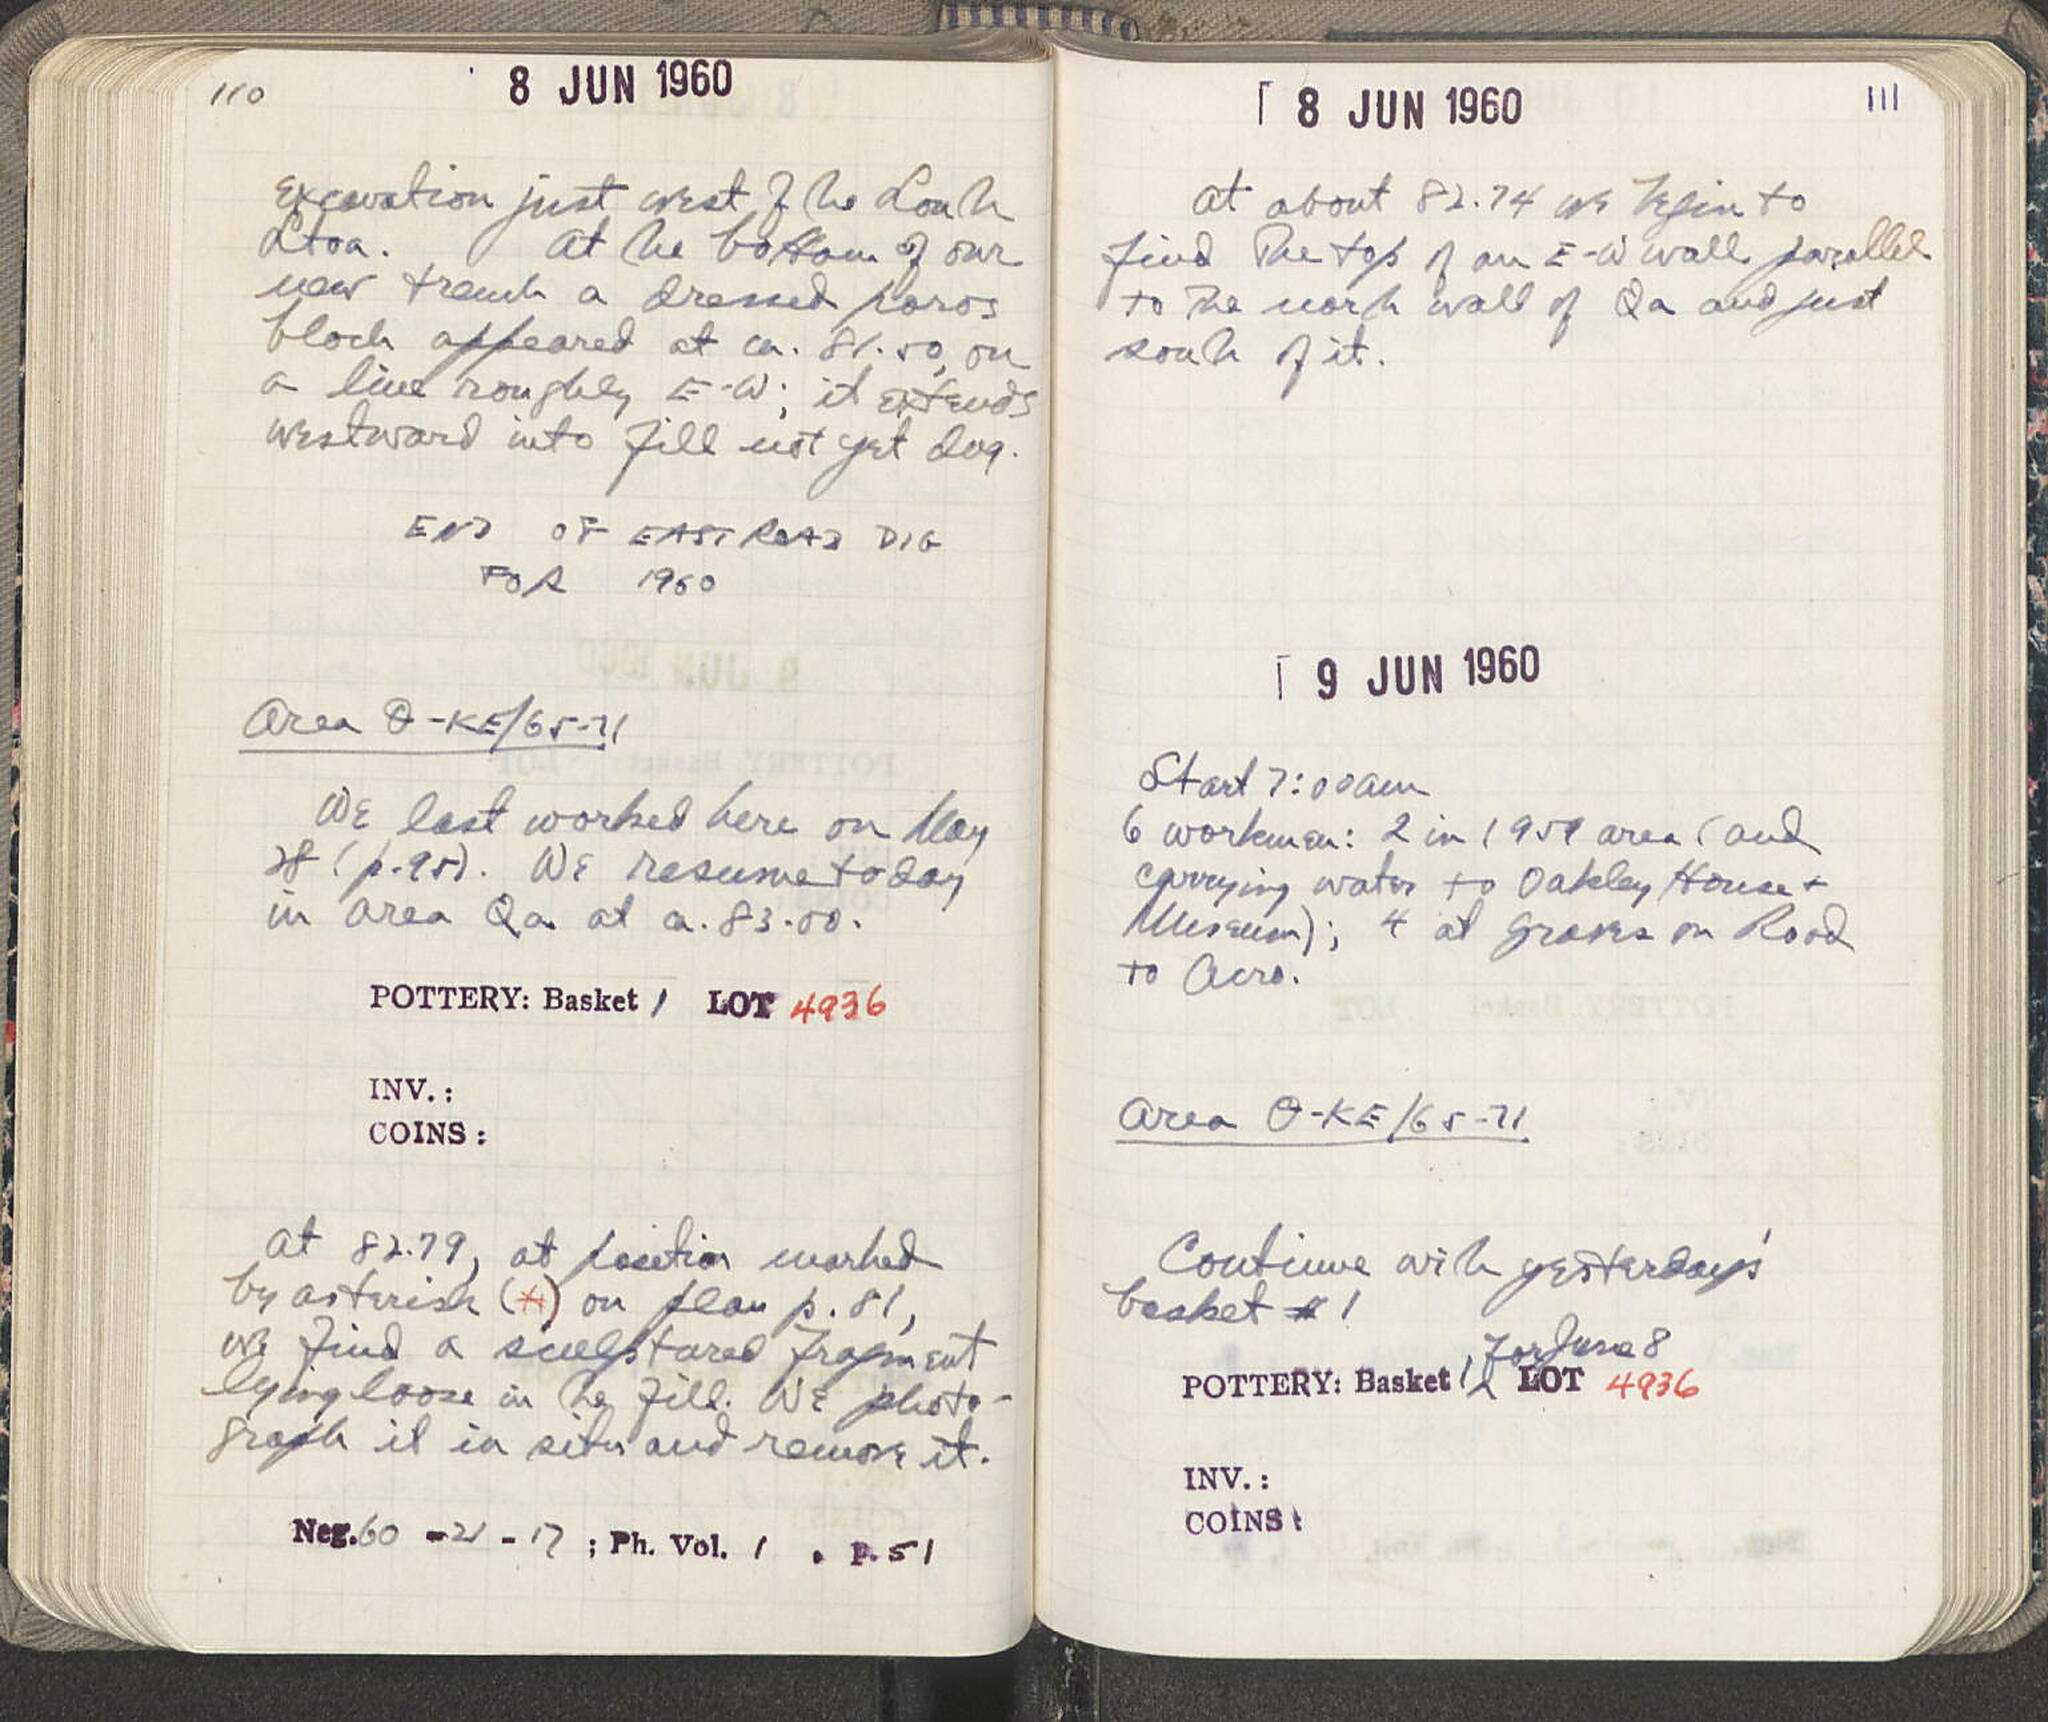 110
8 JUN 1960
excavation just west of the South
Stoa. At the bottom of our
new trench a dressed poros
block appeared at ca. 81.50, on
a line roughly E-W; it extends
westward into fill not yet dug.
END OF EAST ROAD DIG
FOR 1960
Area Θ-KE/65-71
We last worked here on May
28 (p.95). We resume today
in area Qa at ca. 83.00.
POTTERY: Basket 1 LOT 4936
INV.:
COINS:
At 82.79, at position marked
by asterisk (*) on plan p. 81,
we find a sculptured fragment
lying loose in the fill. We photo-
graph it in situ and remove it.
Neg. 60 - 21 - 17 ; Ph. Vol. 1 . p. 51
111
8 JUN 1960
At about 82.74 we begin to
find the top of an E-W wall parallel
to the north wall of Qa and just
south of it.
9 JUN 1960
Start 7:00am
6 workmen: 2 in 1959 area (and
carrying water to Oakley House +
Museum); 4 at graves on Road
to Acro.
Area Θ-KE/65-71
Continue with yesterday's
basket # 1
for June 8
POTTERY: Basket 1 LOT 4936
INV.:
COINS: